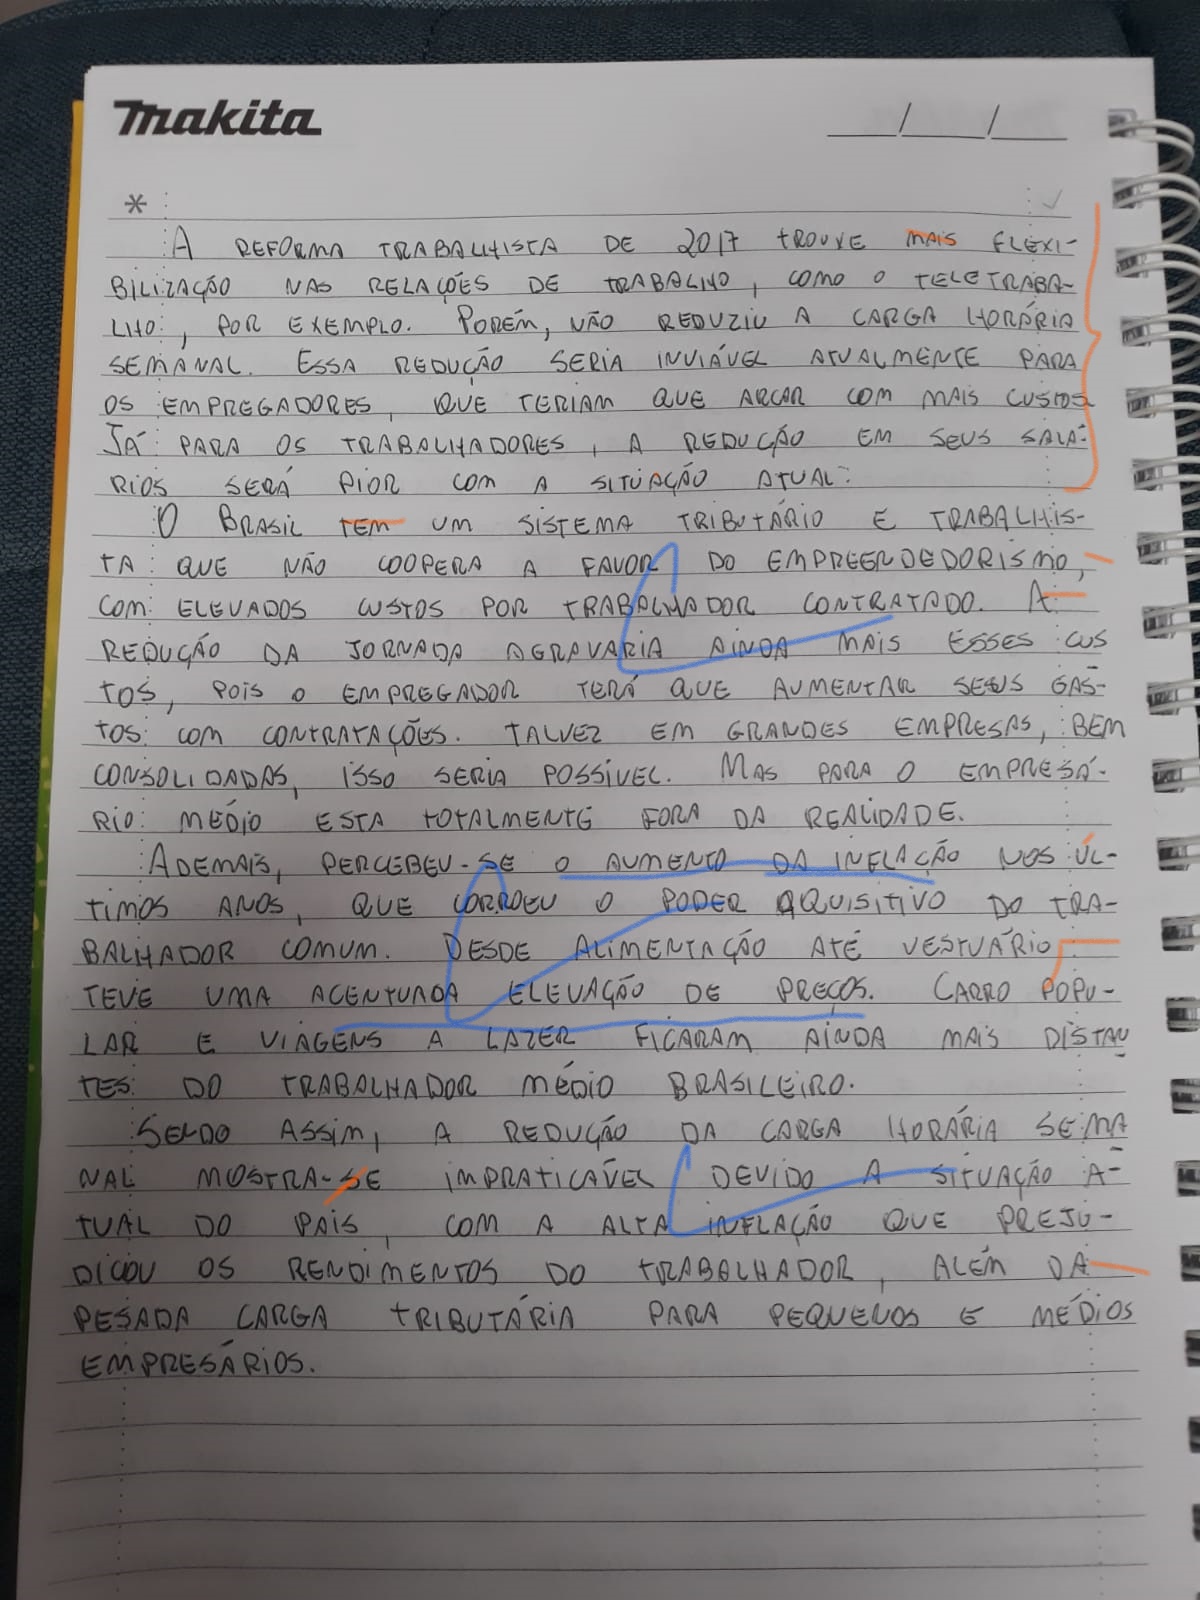 makita
___/___/___
*
A REFORMA TRABALHISTA DE 2017 TROUXE MAIS FLEXI-
BILIZAÇÃO NAS RELAÇÕES DE TRABALHO, COMO O TELETRABA-
LHO, POR EXEMPLO. PORÉM, NÃO REDUZIU A CARGA HORÁRIA
SEMANAL. ESSA REDUÇÃO SERIA INVIÁVEL ATUALMENTE PARA
OS EMPREGADORES, QUE TERIAM QUE ARCAR COM MAIS CUSTOS
JÁ PARA OS TRABALHADORES, A REDUÇÃO EM SEUS SALÁ-
RIOS SERÁ PIOR COM A SITUAÇÃO ATUAL.
O BRASIL TEM UM SISTEMA TRIBUTÁRIO E TRABALHIS-
TA QUE NÃO COOPERA A FAVOR DO EMPREENDEDORISMO,
COM ELEVADOS CUSTOS POR TRABALHADOR CONTRATADO. A
REDUÇÃO DA JORNADA AGRAVARIA AINDA MAIS ESSES CUS
TOS, POIS O EMPREGADOR TERÁ QUE AUMENTAR SEUS GAS-
TOS COM CONTRATAÇÕES. TALVEZ EM GRANDES EMPRESAS, BEM
CONSOLIDADAS, ISSO SERIA POSSÍVEL. MAS PARA O EMPRESÁ-
RIO MÉDIO ESTA TOTALMENTE FORA DA REALIDADE.
ADEMAIS, PERCEBEU-SE O AUMENTO DA INFLAÇÃO NOS ÚL-
TIMOS ANOS, QUE CORROEU O PODER AQUISITIVO DO TRA-
BALHADOR COMUM. DESDE ALIMENTAÇÃO ATÉ VESTUÁRIO
TEVE UMA ACENTUADA ELEVAÇÃO DE PREÇOS. CARRO POPU-
LAR E VIAGENS A LAZER FICARAM AINDA MAIS DISTAN
TES DO TRABALHADOR MÉDIO BRASILEIRO.
SENDO ASSIM, A REDUÇÃO DA CARGA HORÁRIA SEMA
NAL MOSTRA-SE IMPRATICÁVEL DEVIDO A SITUAÇÃO A-
TUAL DO PAÍS, COM A ALTA INFLAÇÃO QUE PREJU-
DICOU OS RENDIMENTOS DO TRABALHADOR, ALÉM DA
PESADA CARGA TRIBUTÁRIA PARA PEQUENOS E MÉDIOS
EMPRESÁRIOS.